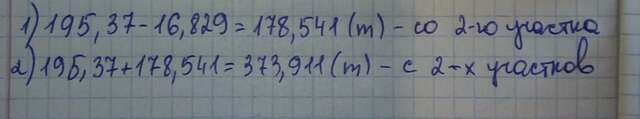 1) 195,37-16,829=178,541(т) - со 2-го участка
2) 195,37+178,541=373,911(т) - с 2-х участков